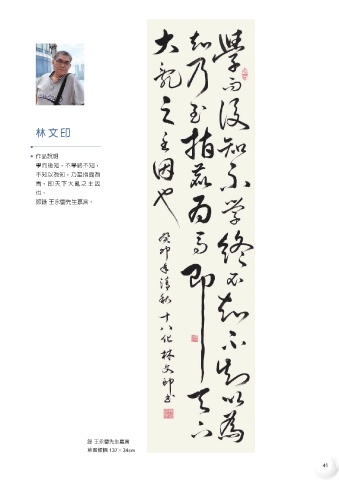 林文印
作品說明
學而後知，不學終不知，
不知以為知，乃至指鹿為
馬，即天下大亂之主因
也。
節錄 王永慶先生嘉言。
學而後知不学終不知不知以為
知乃至指鹿為馬即天下
大亂之主因也
癸卯年清秋 十八化林文印書
錄 王永慶先生嘉言
草書條幅 137 × 34cm
41